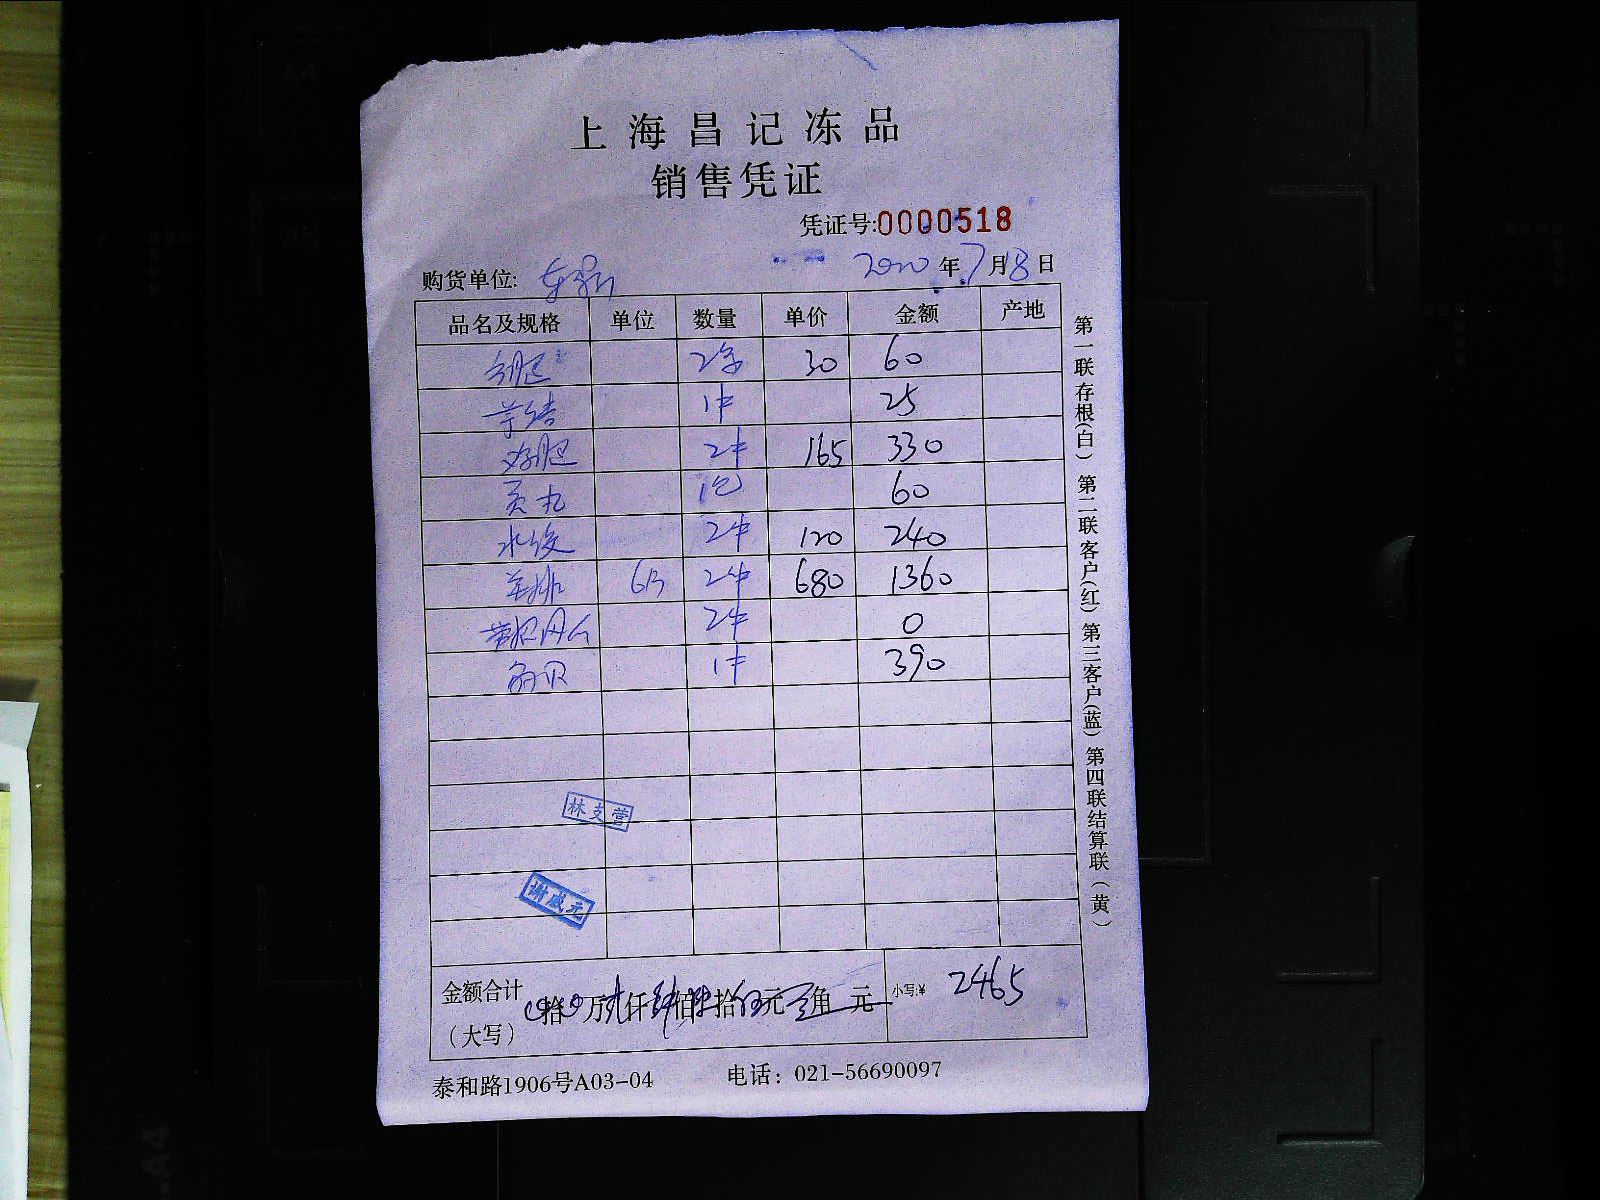 上海昌记冻品
销售凭证
凭证号:0000518
购货单位: 2020年7月18日
品名及规格 单位 数量 单价 金额 产地
2 30 60
1件 25
2件 165 330
1包 60
水饺 2件 120 240
羊排 6B 2件 680 1360
2件 0
1件 390
林支营
谢成元
金额合计 拾万贰仟肆佰陆拾伍元 角 元 小写:¥ 2465
（大写）
泰和路1906号A03-04 电话：021-56690097
第一联存根(白) 第二联客户(红) 第三客户(蓝) 第四联结算联（黄）